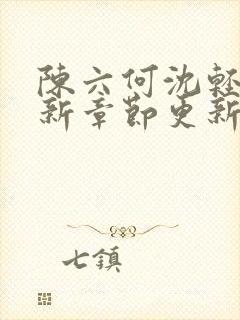 陳六何沈輕
新章節更新
七鎮